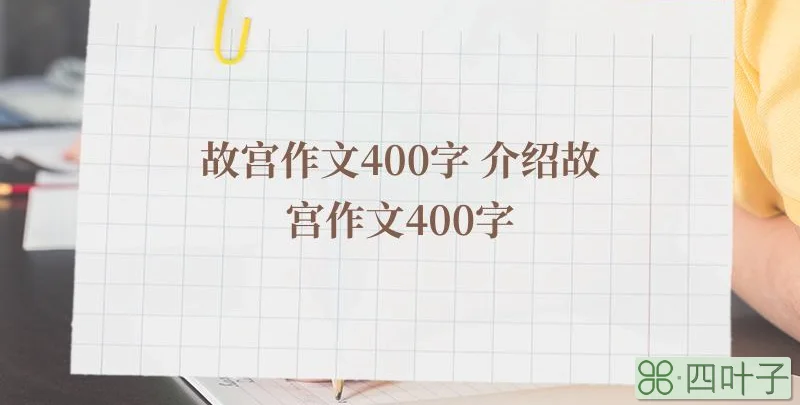 故宫作文400字 介绍故
宫作文400字
四叶子